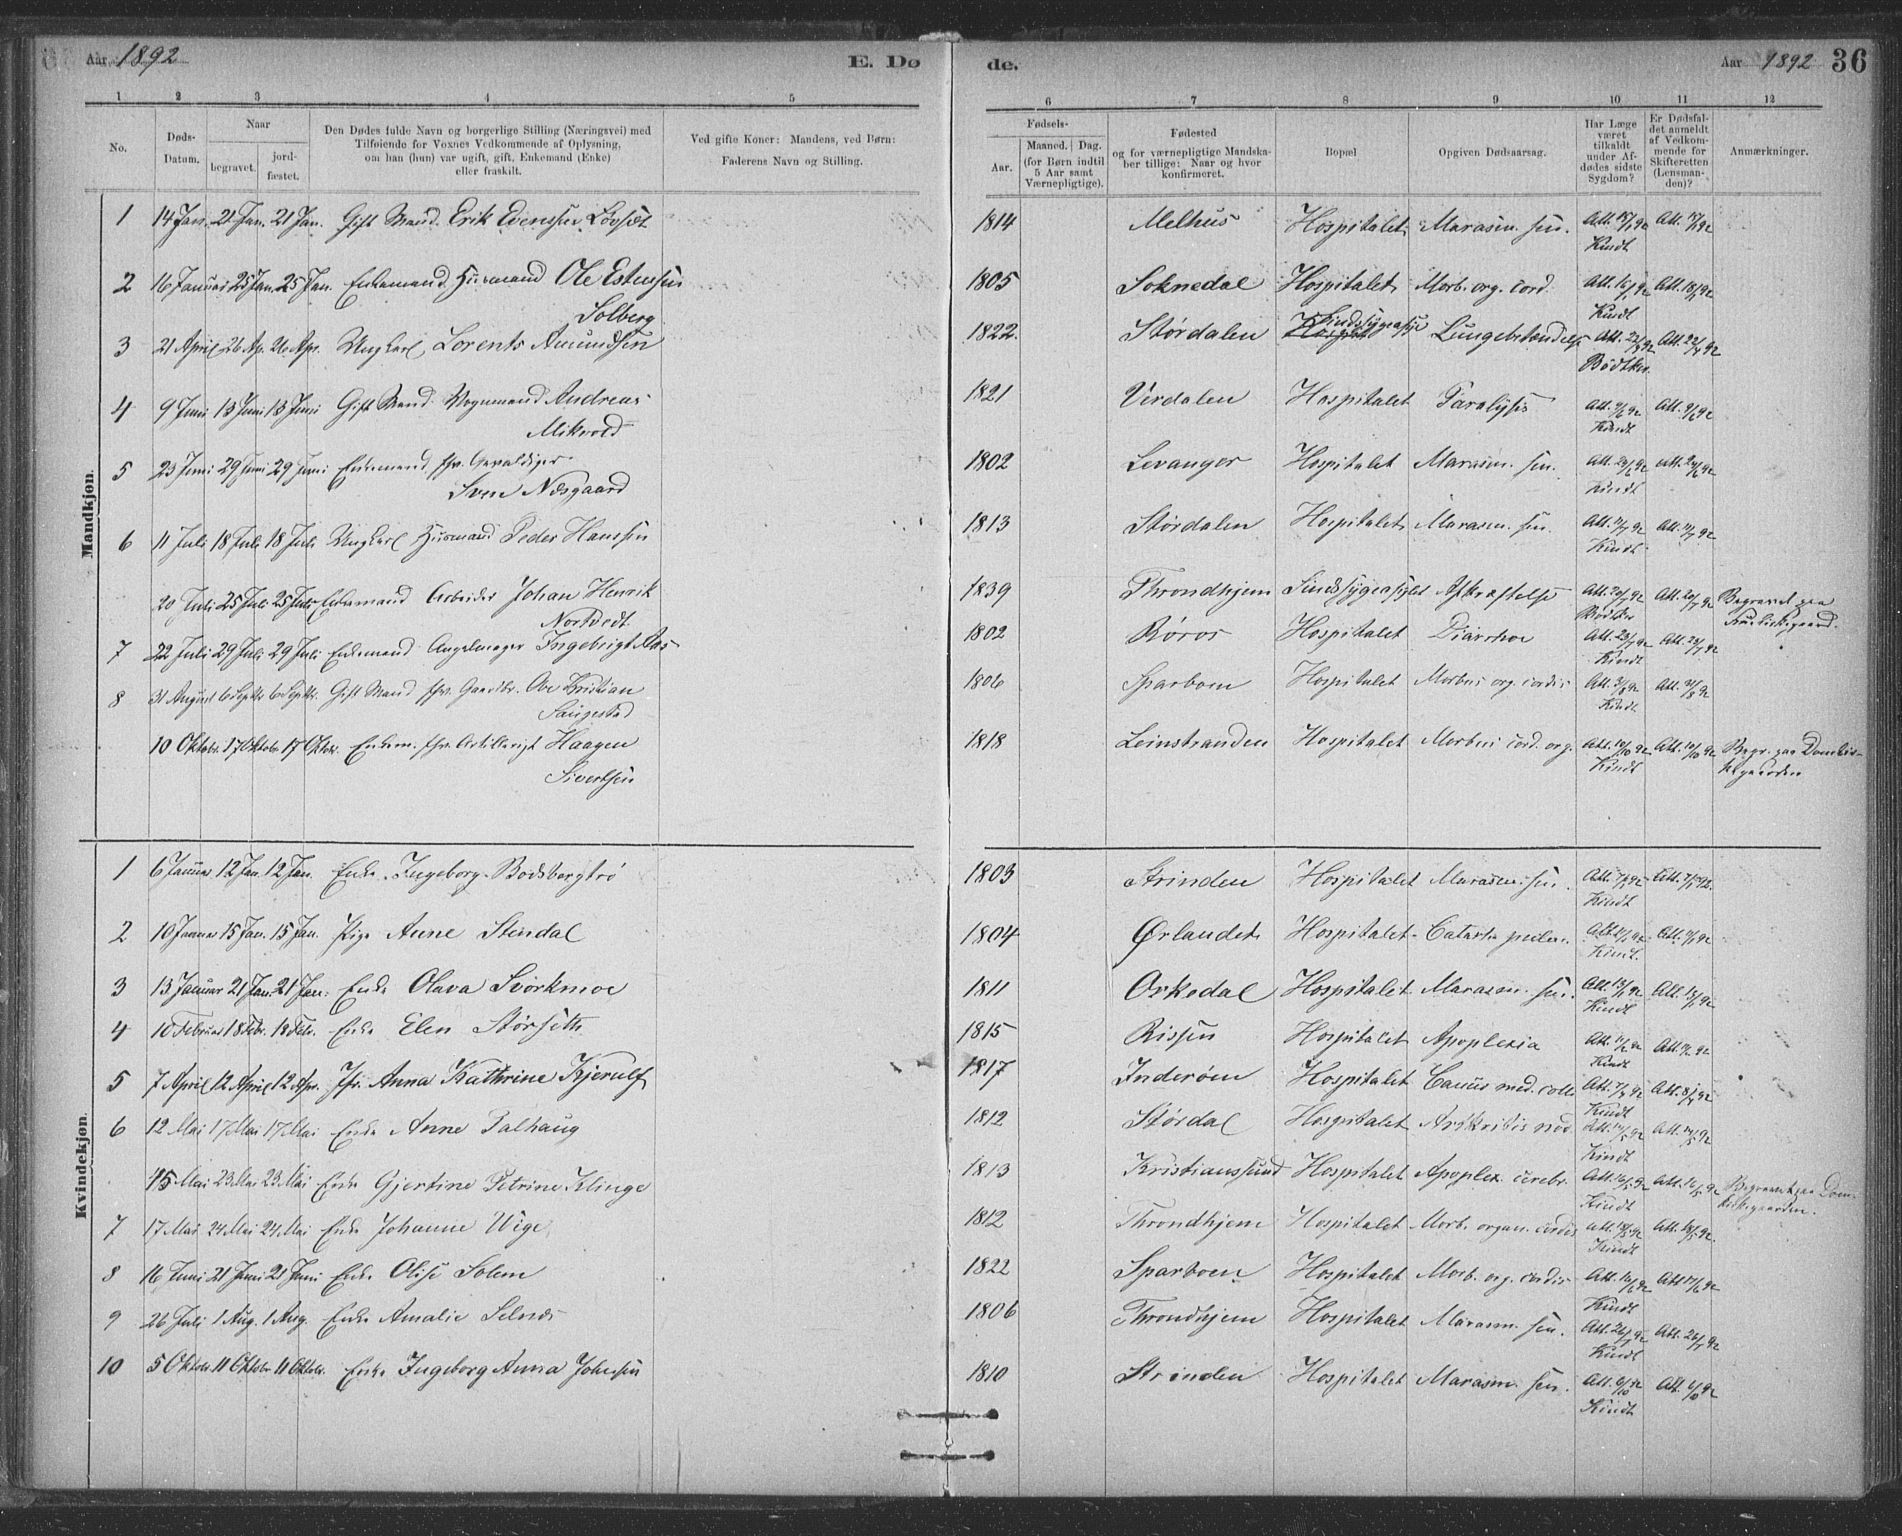 Aar 1892 E. Dø de. Aar 1892 36
1 2 3 4 5 6 7 8 9 10 11 12
No. Døds-Datum. Naar begravet. jord-fæstet. Den Dødes fulde Navn og borgerlige Stilling (Næringsvei) med Tilføiende for Voxnes Vedkommende af Oplysning, om han (hun) var ugift, gift, Enkemand (Enke) eller fraskilt. Ved gifte Koner: Mandens, ved Børn: Faderens Navn og Stilling. Fødsels- Aar. Maaned. Dag. (for Børn indtil 5 Aar samt Værnepligtige). Fødested og for værnepligtige Mandskaber tillige: Naar og hvor konfirmeret. Bopæl Opgiven Dødsaarsag. Har Læge været tilkaldt under Afdødes sidste Sygdom? Er Dødsfaldet anmeldt af Vedkommende for Skifteretten (Lensmanden)? Anmærkninger.
Mandkjøn.
1 14 Jan. 21 Jan. 21 Jan. Gift Mand. Erik Evensen Løvset 1814 Melhus Hospitalet Marasm. sen. Att. 15/1 92 Kindt Att.
2 16 Januar 25 Jan. 25 Jan. Enkemand Husmand Ole Estensen Solberg 1805 Soknedal Hospitalet Morb. org. cord. Att. 16/1 92 Kindt Att. 18/1 92
3 21 April 26 Ap. 26 Apr. Ungkarl Lorents Amundsen 1822. Størdalen Sindssygeasyl Lungebetændelse Att. 22/4 92 Bødtker. Att. 22/4 92
4 9 Juni 13 Juni 13 Juni Gift Mand Vognmand Andreas Mikvold 1821 Verdalen Hospitalet Paralysis Att. 9/6 92 Kindt Att. 9/6 92
5 23 Juni 29 Juni 29 Juni Enkemand fhv. Gevaldiger Sven Næsgaard 1802 Levanger Hospitalet Marasm. sen. Att. 24/6 92 Kindt Att. 24/6 92
6 11 Juli 18 Juli 18 Juli Ungkarl Husmand Peder Hansen 1813 Størdalen Hospitalet Marasm. sen. Att. 11/7 92 Kindt Att. 11/7 92
20 Juli 25 Juli 25 Juli Enkemand Arbeider Johan Henrik Nortvedt 1839 Throndhjem Sindssygeasylet Afkræftelse Att. 20/7 92 Bødtker Att. 20/7 92 Begravet paa
7 22 Juli 29 Juli 29 Juli Enkemand Angelmager Ingebrigt Aas 1802 Røros Hospitalet Diarrhoe Att. 23/7 92 Kindt Att. 23/7 92
8 31 August 6 Septbr. 6 Septbr. Gift Mand fhv. Gaardbr. Ove Kristian Saugestad 1806 Sparboen Hospitalet Morbus org. cordis Att. 31/8 92 Kindt Att. 31/8 92
10 Oktobr. 17 Oktobr. 17 Oktbr. Enkem. fhv. Artillerigt Haagen Sivertsen 1818 Leinstranden Hospitalet Morbus cord. org. Att. 10/10 92 Kindt Att. 10/10 92 Begr. paa Domkirkegaarden
Kvindekjøn.
1 6 Januar 12 Jan. 12 Jan. Enke. Ingeborg Bodsbergtrø 1803 Strinden Hospitalet Marasm. sen. Att. 7/1 92 Kindt Att. 7/1 92.
2 10 Januar 15 Jan. 15 Jan. Pige Anne Stendal 1804 Ørlandet Hospitalet Kindt. Att. 11/1 92
3 13 Januar 21 Jan. 21 Jan. Enke Olava Svorkmoe 1811 Orkedal Hospitalet Marasm. sen. Att. 13/1 92 Kindt Att. 13/1 92
4 10 Februar 18 Febr. 18 Febr. Enke Elen Størseth 1815 Rissen Hospitalet Apoplexia Att. 11/2 92 Kindt Att. 11/2 92
5 7 April 12 April 12 Apr. Jfr. Anna Kathrine Kjerulf 1817 Inderøen Hospitalet Att. 7/4 92 Kindt Att. 8/4 92
6 12 Mai 17 Mai 17 Mai Enke Anne Palhaug 1812 Størdal Hospitalet Att. 14/5 92 Kindt Att. 14/5 92
15 Mai 23 Mai 23 Mai Enke Gjertine Petrine Klinge 1813 Kristianssund Hospitalet Apoplex. cerebr. Att. 16/5 92 Kindt Att. 16/5 92 Begravet paa Domkirkegaarden.
7 17 Mai 24 Mai 24 Mai Enke Johanne Wige 1812 Throndhjem Hospitalet Morb. organ. cordis Att. 18/5 92 Kindt Att. 18/5 92.
8 16 Juni 21 Juni 21 Juni Enke Olise Solem 1822 Sparboen Hospitalet Morb. org. cordis Att. 16/6 92 Kindt Att. 17/6 92
9 26 Juli 1 Aug. 1 Aug. Enke Amalie Selnæs 1806 Throndhjem Hospitalet Marasm. sen. Att. 26/7 92 Kindt Att. 26/7 92
10 5 Oktobr 11 Oktobr 11 Oktobr. Enke Ingeborg Anna Johnsen 1810 Strinden Hospitalet Marasm. sen. Att. 6/10 92 Kindt Att. 6/10 92